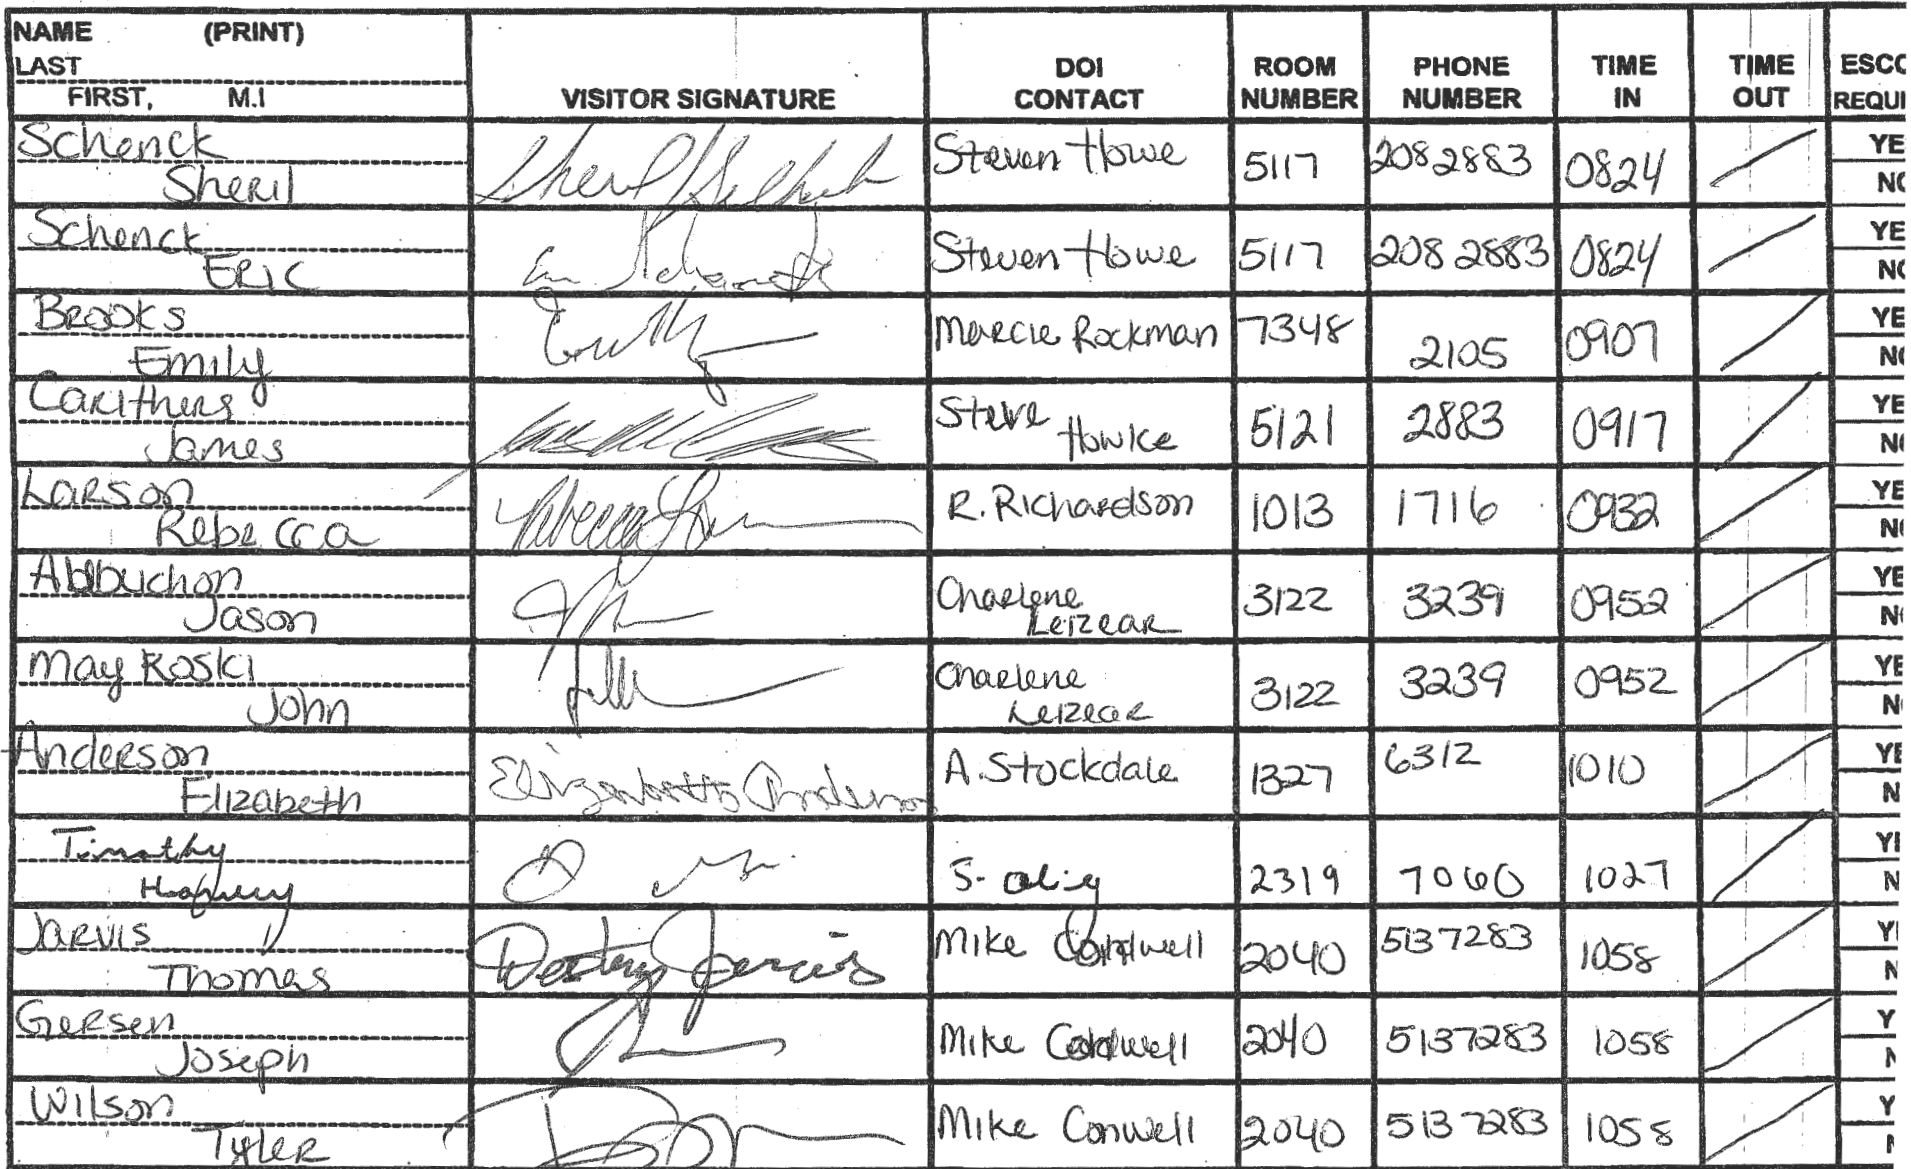 NAME (PRINT)
LAST
FIRST, M.I
VISITOR SIGNATURE
DOI CONTACT
ROOM NUMBER
PHONE NUMBER
TIME IN
TIME OUT
ESCO
REQUI
Schenck Sheril Steven Howe 5117 2082883 0824 YE NO
Schenck Eric Steven Howe 5117 208 2883 0824 YE NO
Brooks Emily Marcie Rockman 7348 2105 0907 YE NO
Carithers James Steve Howke 5121 2883 0917 YE NO
Larson Rebecca Rebecca R. Richardson 1013 1716 0932 YE NO
Jason Charlene Leizear 3122 3239 0952 YE NO
May Roski John Charlene Leizear 3122 3239 0952 YE N
Anderson Elizabeth Elizabeth Anderson A. Stockdale 1327 6312 1010 YE N
Timothy S. 2319 7060 1027 YE N
Jarvis Thomas Destry Jarvis Mike 2040 5137283 1058 Y N
Gersen Joseph Mike 2040 5137283 1058 Y N
Wilson Tyler Mike Conwell 2040 513 7283 1058 Y